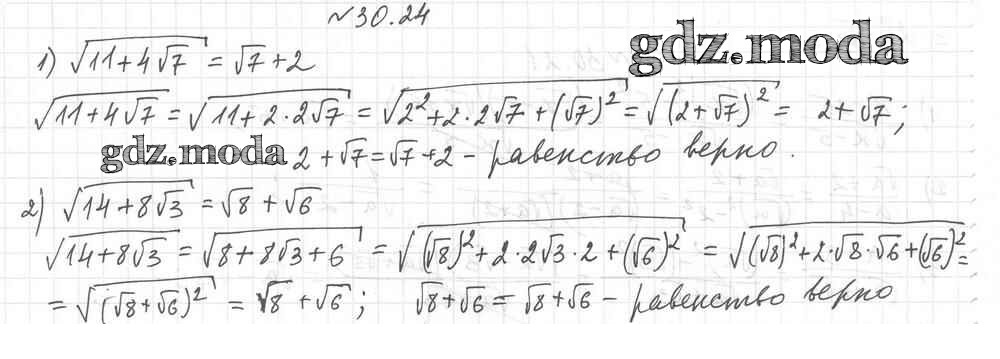 №30.24
gdz.moda
1) √(11+4√7) = √7+2
√(11+4√7) = √(11+2·2√7) = √(2²+2·2√7+(√7)²) = √((2+√7)²) = 2+√7;
gdz.moda 2+√7=√7+2 – равенство верно.
2) √(14+8√3) = √8+√6
√(14+8√3) = √(8+8√3+6) = √((√8)²+2·2√3·2+(√6)²) = √((√8)²+2·√8·√6+(√6)²) =
= √((√8+√6)²) = √8+√6; √8+√6=√8+√6 – равенство верно